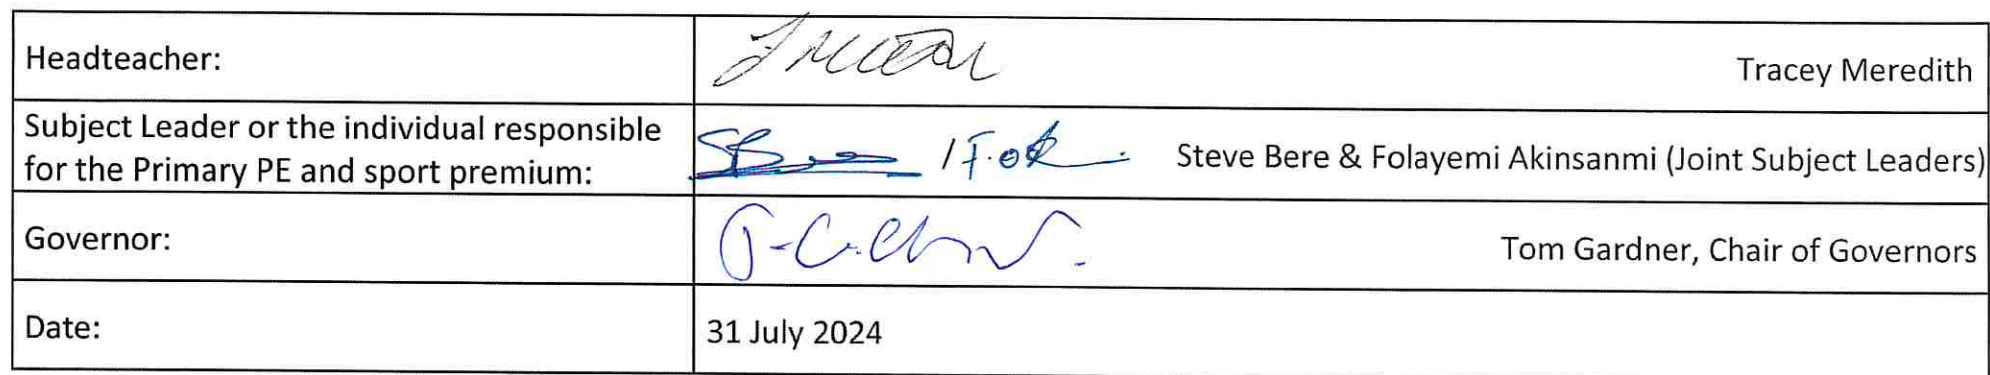 Headteacher: Tracey Meredith
Subject Leader or the individual responsible
for the Primary PE and sport premium: Steve Bere & Folayemi Akinsanmi (Joint Subject Leaders)
Governor: Tom Gardner, Chair of Governors
Date: 31 July 2024